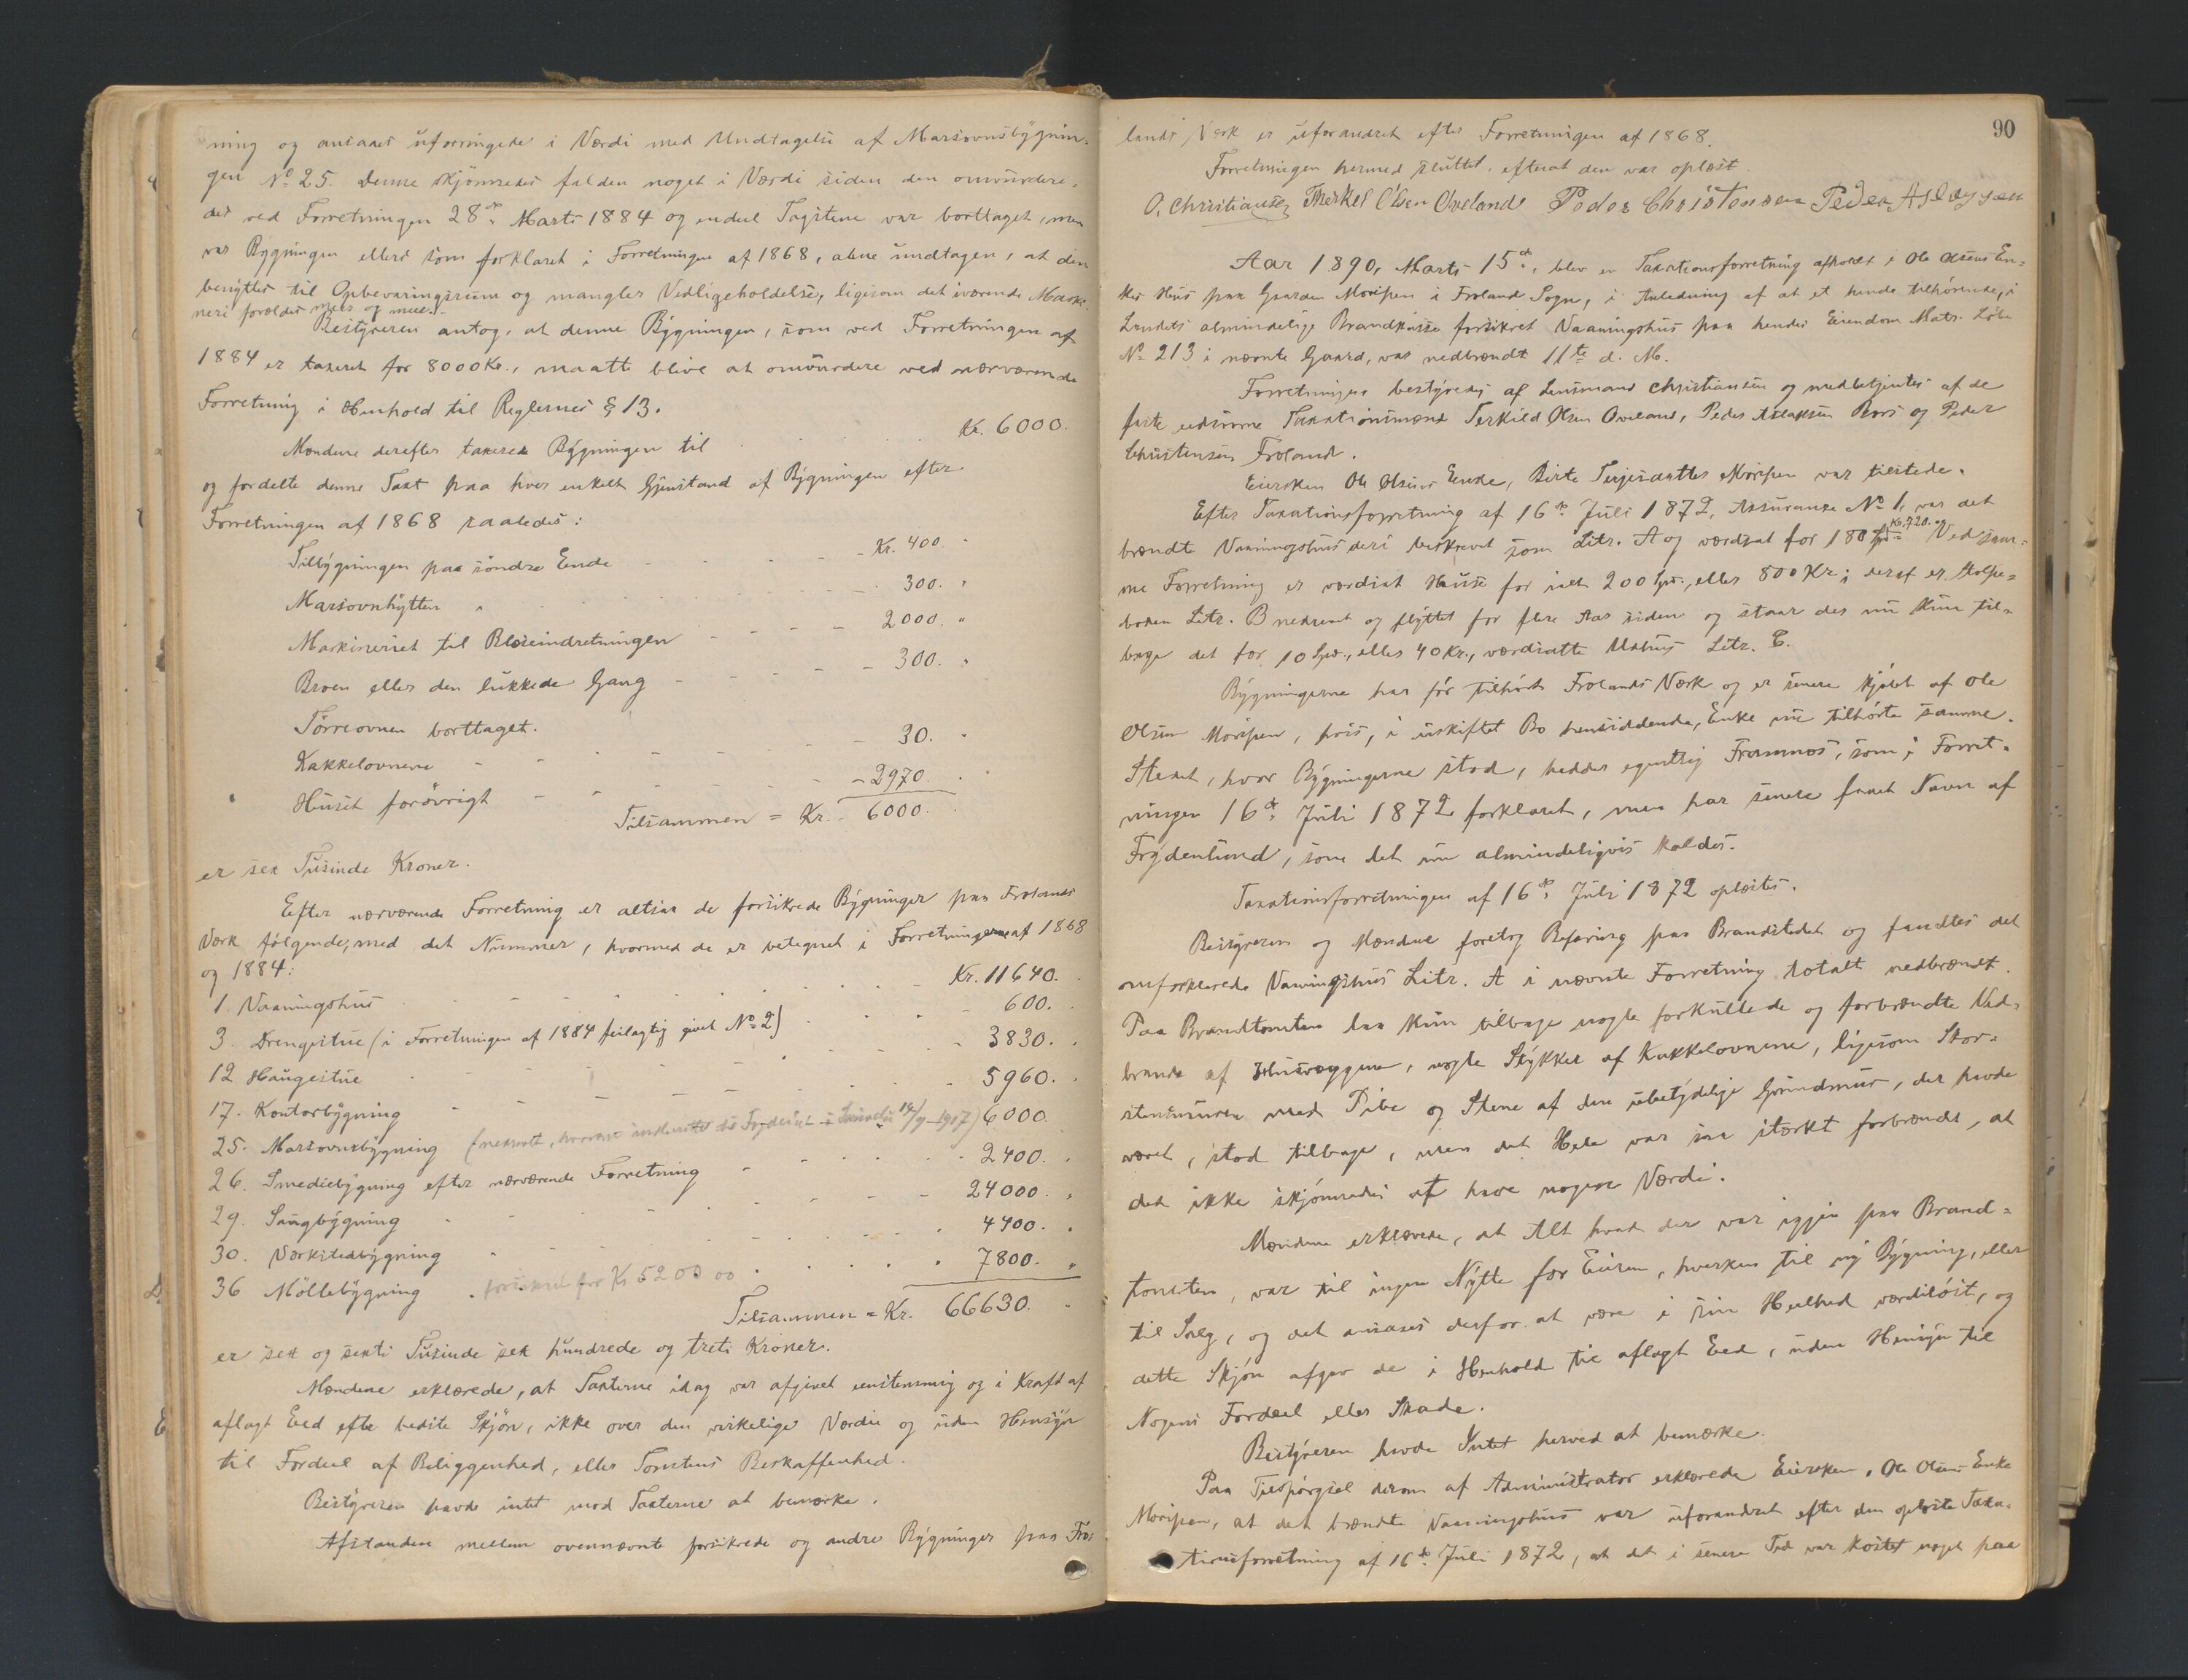 ning og ansaaes uforringede i Værdi med Undtagelse af Marsovnsbygnin-
gen No 25. Denne skjønnedes falden noget i Værdi siden den omvurdere-
des ved Forretningen 28de Marts 1884 og endeel Tagstene var borttaget, men
var Bygningen ellers som forklaret i Forretningen af 1868, alene undtagen, at den
benyttes til Opbevaringsrum og mangler Vedligeholdelse, ligesom det iværende Maski-
neri forældes meer og meer.
Bestyreren antog, at denne Bygningen, som ved Forretningen af
1884 er taxeret for 8000 Kr., maatte blive at omvurdere ved nærværende
Forretning i Henhold til Reglernes § 13.
Mændene derefter taxerede Bygningen til Kr. 6000.
og fordelte denne Taxt paa hver enkelt Gjenstand af Bygningen efter
Forretningen af 1868 saaledes:
Tilbygningen paa søndre Ende - - - Kr. 400. "
Marsovnhytten " 300. "
Maskineriet til Blæseindretningen - - - - 2000. "
Broen eller den lukkede Gang - - - - 300. "
Tørreovnen borttaget.
Kakkelovnene - - - - 30. "
Huset forøvrigt - - - - 2970. "
Tilsammen = Kr. 6000.
er sex Tusinde Kroner.
Efter nærværende Forretning er altsaa de forsikrede Bygninger paa Frolands
Værk følgende, med det Nummer, hvormed de er betegnet i Forretningerne af 1868
og 1884:
1. Vaaningshus Kr. 11640.
3. Drengestue (i Forretningen af 1884 feilagtig givet No 2) 600.
12 Haugestue 3830.
17. Kontorbygning 5960.
25. Marsovnsbygning (nedrevet, hvorom 19/9 1917) 6000.
26. Smediebygning efter nærværende Forretning 2400.
29. Saugbygning 24000. "
30. Værkstedbygning 4400. "
36 Møllebygning forsikret for Kr 5200 00 7800. "
Tilsammen = Kr. 66630.
er sex og sexti Tusinde sex hundrede og treti Kroner.
Mændene erklærede, at Taxterne idag var afgivet eenstemmig og i Kraft af
aflagt Eed efter bedste Skjøn, ikke over den virkelige Værdie og uden Hensyn
til Fordeel af Beliggenhed, eller Tomtens Beskaffenhed.
Bestyreren havde intet mod Taxterne at bemærke.
Afstanden mellem ovennævnte forsikrede og andre Bygninger paa Fro-
90
lands Værk er uforandret efter Forretningen af 1868.
Forretningen hermed sluttet, efterat den var oplæst.
O. Christiansen Therkel Olsen Oveland Peder Christensen Peder Aslagsen
Aar 1890, Marts 15de, blev en Taxationsforretning afholdt i Ole Olsens En-
kes Huus paa Gaarden Moripen i Froland Sogn, i Anledning af at et hende tilhørende, i
Landets almindelige Brandkasse forsikret Vaaningshus paa hendes Eiendom Matr. Løbe
No 213 i nævnte Gaard, var nedbrændt 11te d. M.
Forretningen bestyredes af Lensmand Christiansen og medbetjentes af de
faste edsvorne Taxationsmænd Terkild Olsen Oveland, Peder Aslaksen Bøos og Peder
Christensen Froland.
Eiersken Ole Olsens Enke, Birte Terjesdatter Moripen var tilstede.
Efter Taxationsforretning af 16de Juli 1872, Assurance No 1, var det
brændte Vaaningshus deri beskrevet som Litr. A og værdsat for 180 Spd = Kr. 720.- og Ved sam-
me Forretning er værdsat Huse for ialt 200 Spd., eller 800 Kr.; deraf er Stolpe-
boden Litr. B nedrevet og flyttet for flere Aar siden og staar der nu kun til-
bage det for 10 Spd., eller 40 Kr., værdsatte Udhus Litr. C.
Bygningerne har før tilhørt Frolands Værk og er senere kjøbt af Ole
Olsen Moripen, hvis, i uskiftet Bo hensiddende, Enke nu tilhørte samme.
Stedet, hvor Bygningerne stod, heddes egentlig Frommos, som i Forret-
ningen 16de Juli 1872 forklaret, men har senere faaet Navn af
Frydenlund, som det nu almindeligvis kaldes.
Taxationsforretningen af 16de Juli 1872 oplæstes.
Bestyreren og Mændene foretog Befaring paa Brandstedet og fandtes det
omforklarede Vaaningshus Litr. A i nævnte Forretning totalt nedbrændt.
Paa Brandtomten laa kun tilbage nogle forkullede og forbrændte Ned-
brande af Husvæggene, nogle Stykker af Kakkelovnene, ligesom Skor-
stensmuren med Pibe og Stene af den ubetydelige Grundmur, der havde
været, stod tilbage, men det Hele var saa stærkt forbrændt, at
det ikke skjønnedes at have nogen Værdi.
Mændene erklærede, at Alt hvad der var igjen paa Brand-
tomten, var til ingen Nytte for Eieren, hverken til ny Bygning, eller
til Salg, og det ansaaes derfor at være i sin Heelhed værdiløst, og
dette Skjøn afgav de i Henhold til aflagt Eed, uden Hensyn til
Nogens Fordeel eller Skade.
Bestyreren havde Intet herved at bemærke.
Paa Tilspørgsel derom af Administrator erklærede Eiersken, Ole Olsens Enke
Moripen, at det brændte Vaaningshus var uforandret efter den oplæste Taxa-
tionsforretning af 16de Juli 1872, at det i senere Tid var kostet noget paa